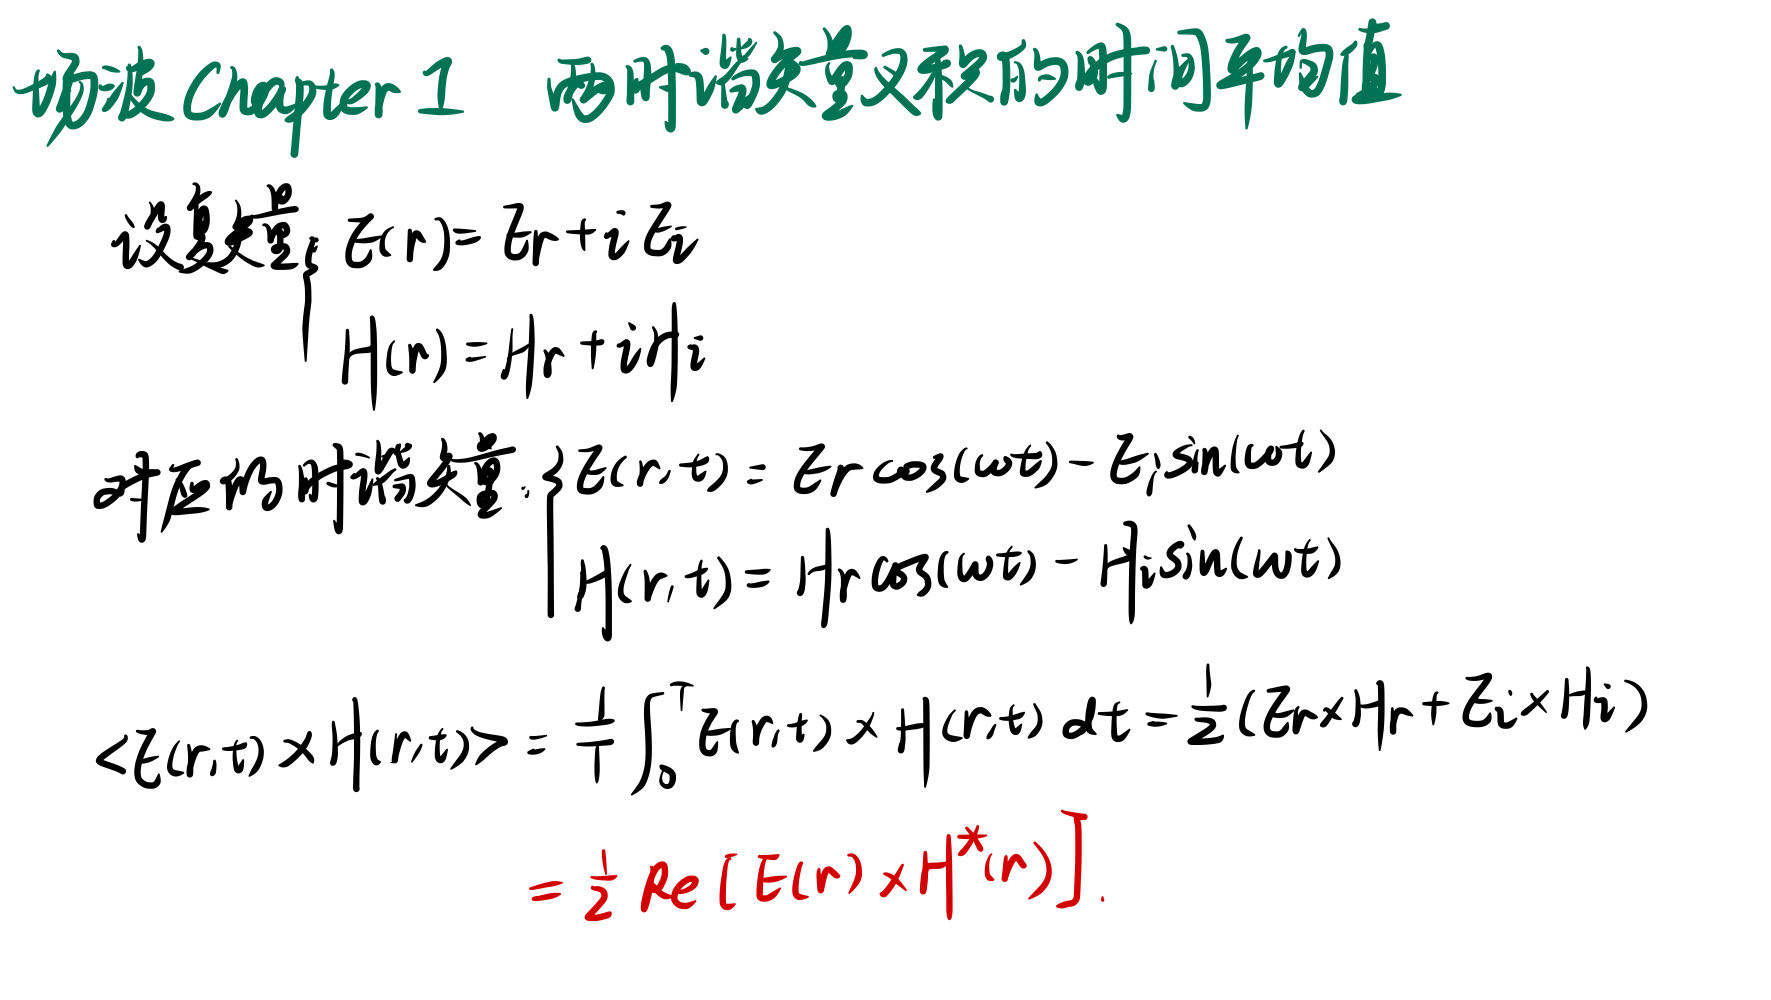 场波 Chapter 1 两时谐矢量叉积的时间平均值
设复矢量 { E(r) = Er + i Ei
H(r) = Hr + i Hi
对应的时谐矢量: { E(r,t) = Er cos(ωt) - Ei sin(ωt)
H(r,t) = Hr cos(ωt) - Hi sin(ωt)
<E(r,t) × H(r,t)> = 1/T ∫₀ᵀ E(r,t) × H(r,t) dt = 1/2 (Er × Hr + Ei × Hi)
= 1/2 Re [ E(r) × H*(r) ].